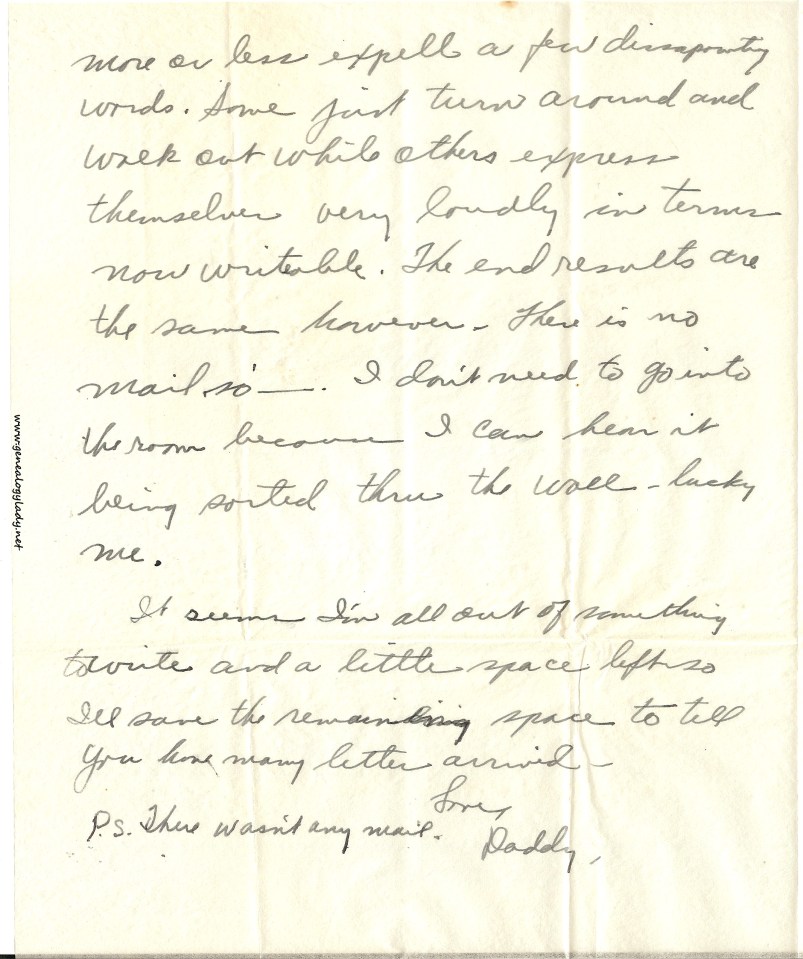 more or less expell a few dissapointing
words. Some just turn around and
walk out while others express
themselves very loudly in terms
now writeable. The end results are
the same however - There is no
mail so —. I don't need to go into
the room because I can hear it
being sorted thru the wall - lucky
me.
It seems I'm all out of something
to write and a little space left so
I'll save the remaining space to tell
you how many letter arrived -
Love,
Daddy,
P.S. There wasn't any mail.
www.genealogylady.net